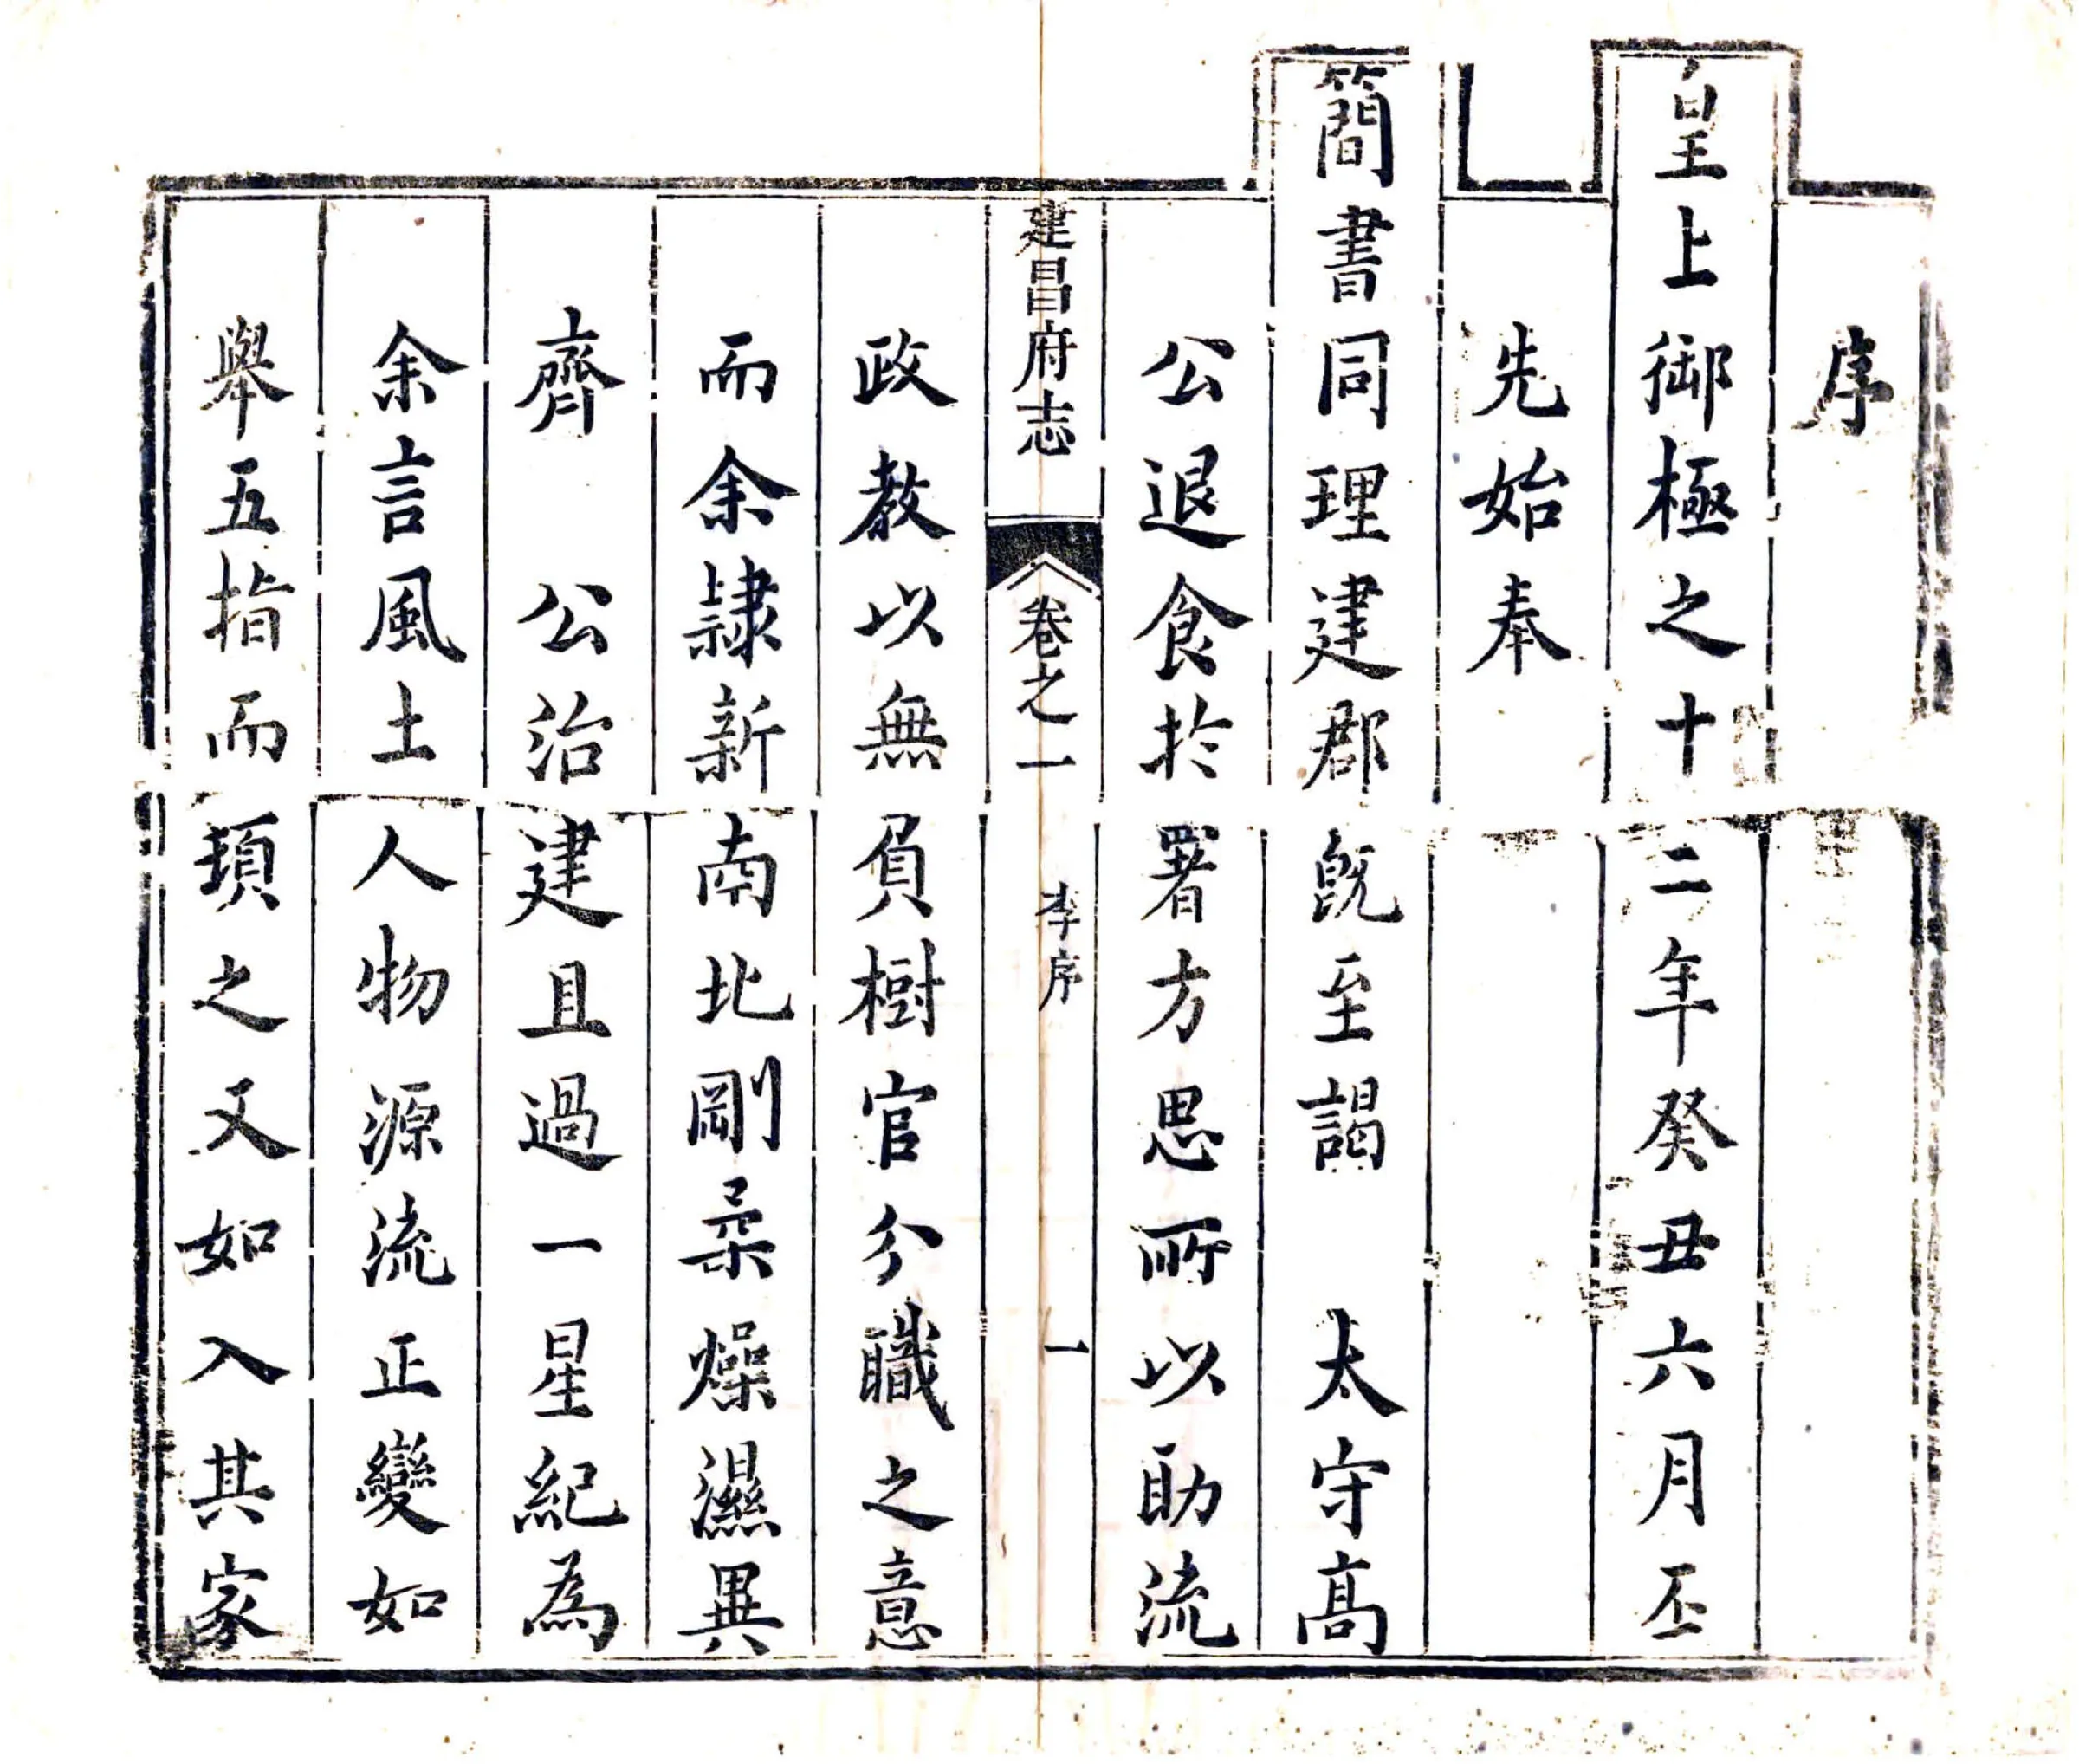 序
皇上御極之十二年癸丑六月丕
先始奉
簡書同理建郡旣至謁　太守高
公退食於署方思所以助流
建昌府志　卷之一　李序　一
政教以無負樹官分職之意
而余隷新南北剛柔燥濕異
齊　公治建且過一星紀為
余言風土人物源流正變如
舉五指而頊之又如入其家